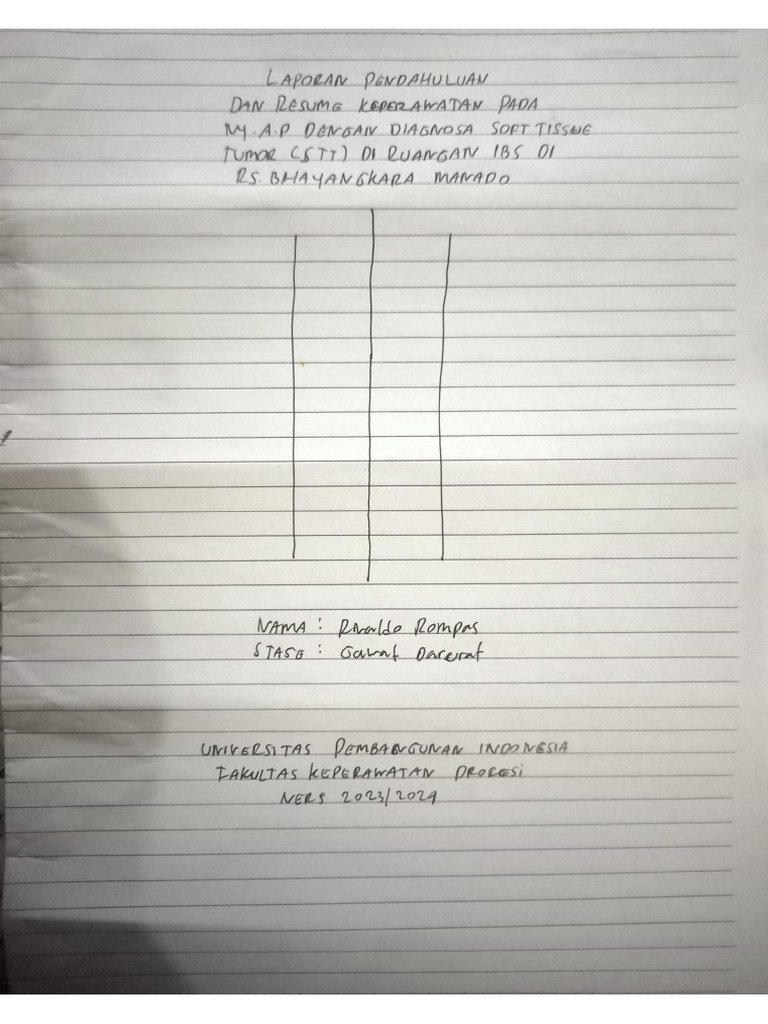 LAPORAN PENDAHULUAN
DAN RESUME KEPERAWATAN PADA
NY. A.P DENGAN DIAGNOSA SOFT TISSUE
TUMOR (STT) DI RUANGAN IBS DI
RS. BHAYANGKARA MANADO
NAMA : Rivaldo Rompas
STASE : Gawat Darurat
UNIVERSITAS PEMBANGUNAN INDONESIA
FAKULTAS KEPERAWATAN PROFESI
NERS 2023/2024